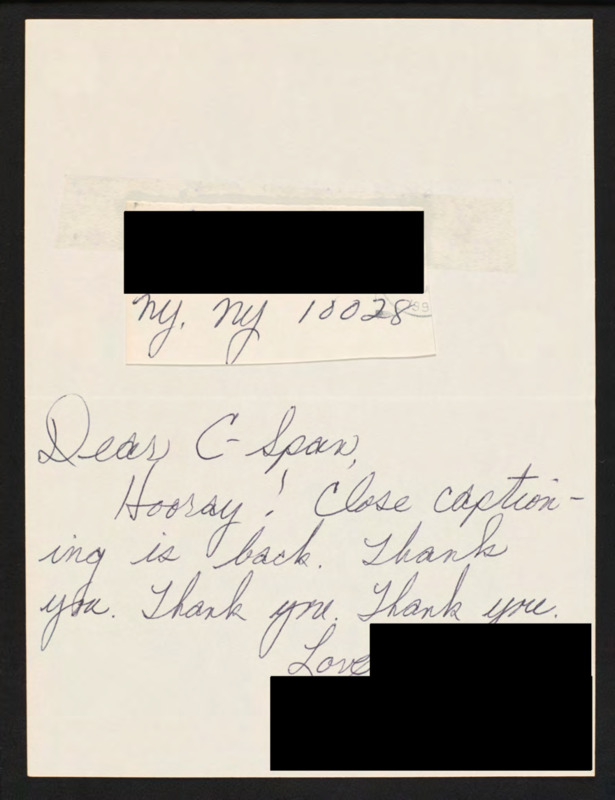 NY, NY 10028
Dear C-Span,
Hooray! Close caption-
ing is back. Thank
you. Thank you. Thank you.
Love